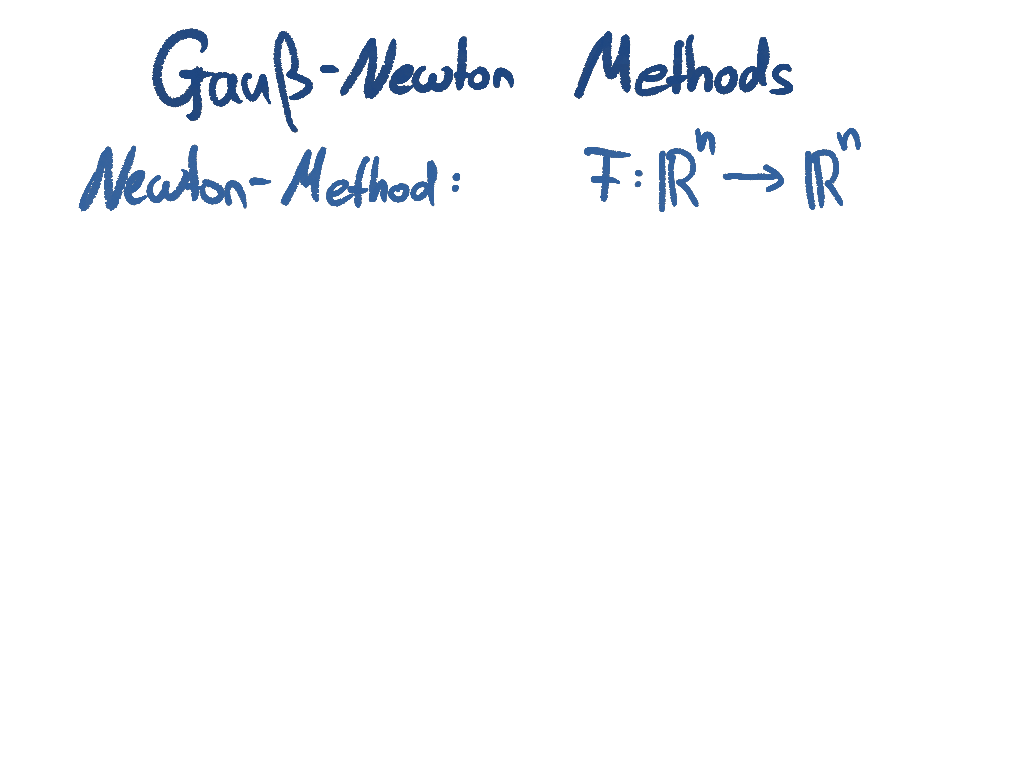 Gauß-Newton Methods
Newton-Method: F: ℝⁿ → ℝⁿ